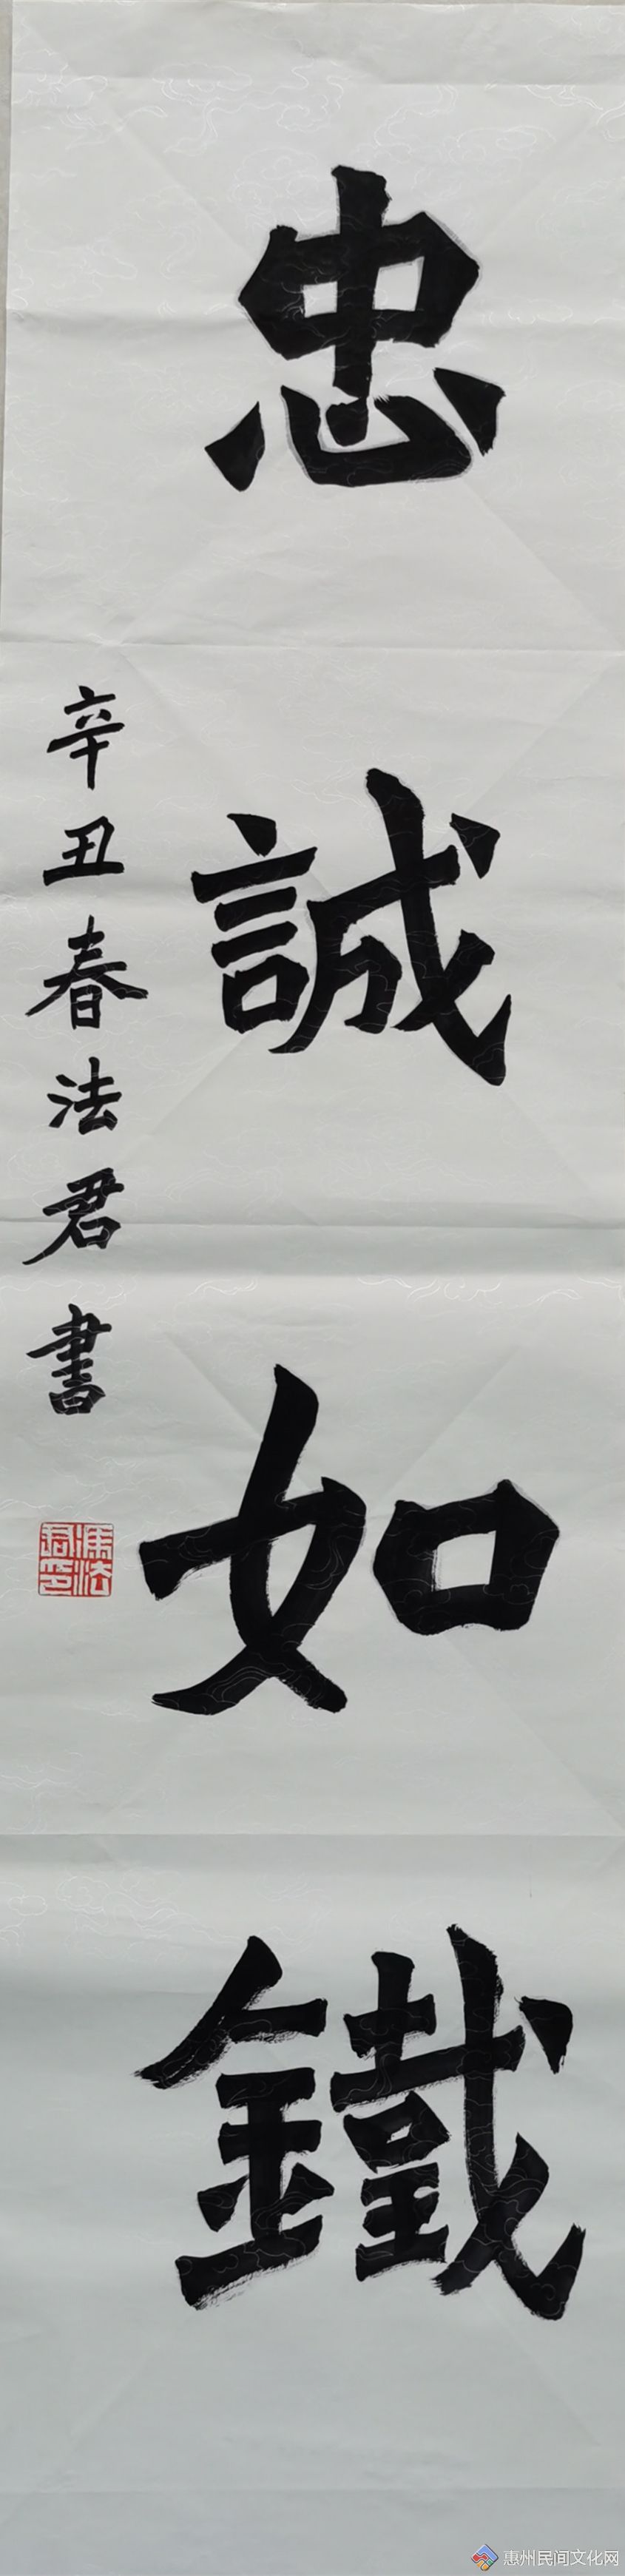 忠誠如鐵
辛丑春法君書
惠州民间文化网